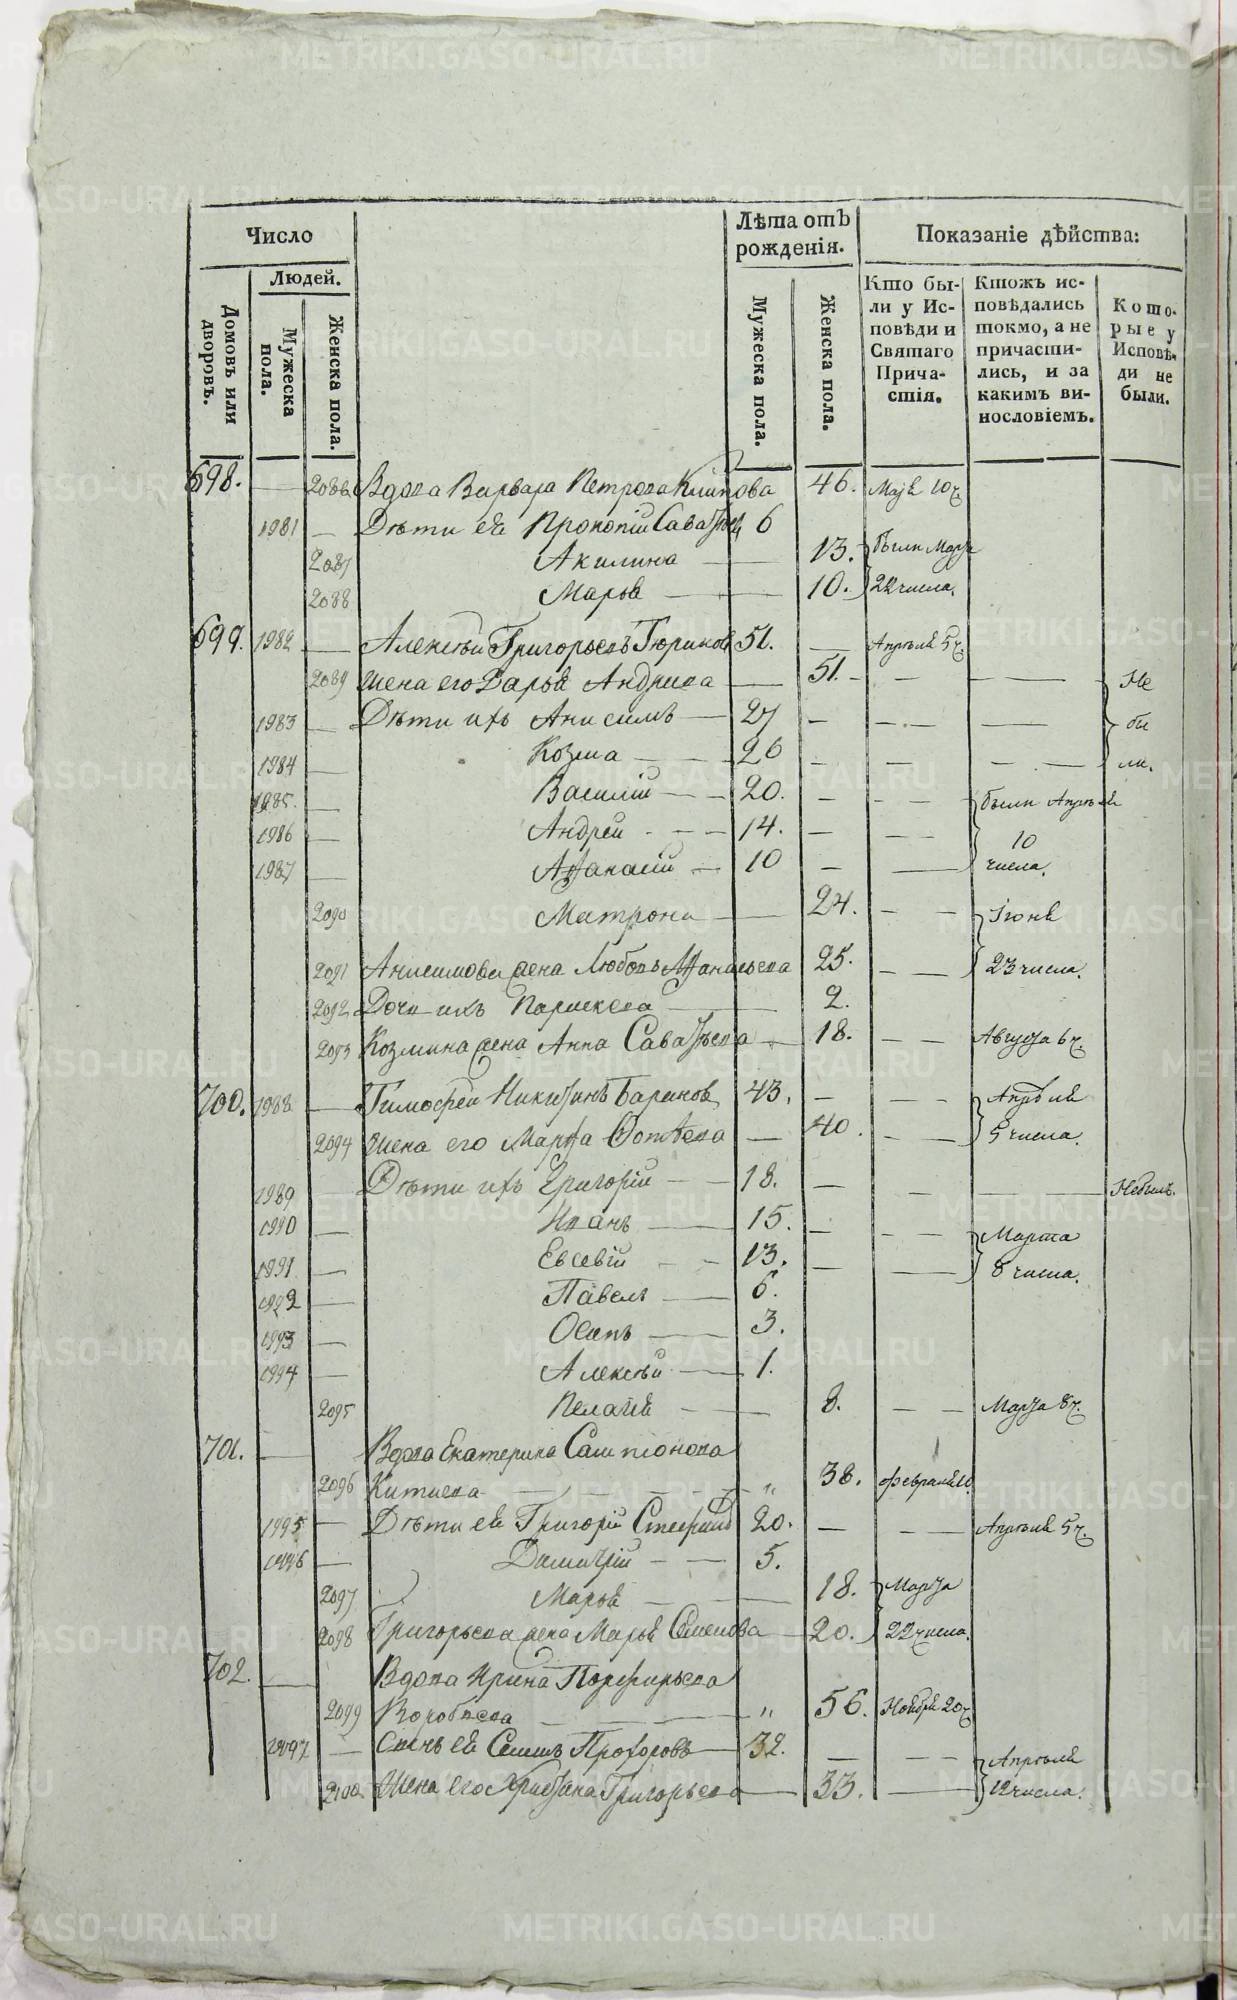 Число
Лѣта отъ рожденія.
Показаніе дѣйства:
Людей.
Домовъ или дворовъ.
Мужеска пола.
Женска пола.
Мужеска пола.
Женска пола.
Кто были у Исповѣди и Святаго Причастія.
Ктожъ исповѣдались токмо, а не причастились, и за какимъ винословіемъ.
Которые у Исповѣди не были.
698. — 2086 Вдова Варвара Петрова 46. Маія 10 ч.
1981 — Дѣти ея Прокопій 6
2087 Акилина — 13. были Марта
2088 Марья — 10. 22 числа.
699. 1982 — Алексѣй Григорьевъ 51. — Апрѣля 5 ч.
2089 Жена его Дарья Андреева — 51. — — Не
1983 — Дѣти ихъ Анисимъ — 27 — — — бы
1984 — Козма — 26 — — — ли.
1985. — Василій — 20. — — были Апрѣля
1986 — Андрей — 14. — — 10
1987 — Афанасій — 10 — — числа.
2090 Матрона — 24. — — Іюня
2091 Анисимова жена Любовь Афанасьева 25. — — 23 числа.
2092 Дочь ихъ Параскева — 2.
2093 Козмина жена Анна 18. — — Августа 6 ч.
700. 1988 — Тимофей Никитинъ Бариновъ 43. — — Апрѣля
2094 Жена его Марфа — 40. — — 5 числа.
1989 — Дѣти ихъ Григорій — 18. — — — Небылъ.
1990 — Иванъ — 15. — — Марта
1991 — Евсевій — 13. — — 8 числа.
1992 — Павелъ — 6.
1993 — Осипъ — 3.
1994 — Алексѣй — 1.
2095 Пелагія — 8. — — Марта 8 ч.
701. — Вдова Екатерина
2096 — „ 38. февраля
1995 — Дѣти ея Григорій 20. — — Апрѣля 5 ч.
1996 — Димитрій — 5.
2097 Марья — 18. Марта
2098 Григорьева жена Марья Семенова — 20. 22 числа.
702. — Вдова Ирина Порфирьева
2099 — „ 56. Ноября 20 ч
1997 — Сынъ ея Прохоровъ — 32. — — Апрѣля
2100 Жена его Григорьева — 33. — 12 числа.
METRIKI.GASO-URAL.RU